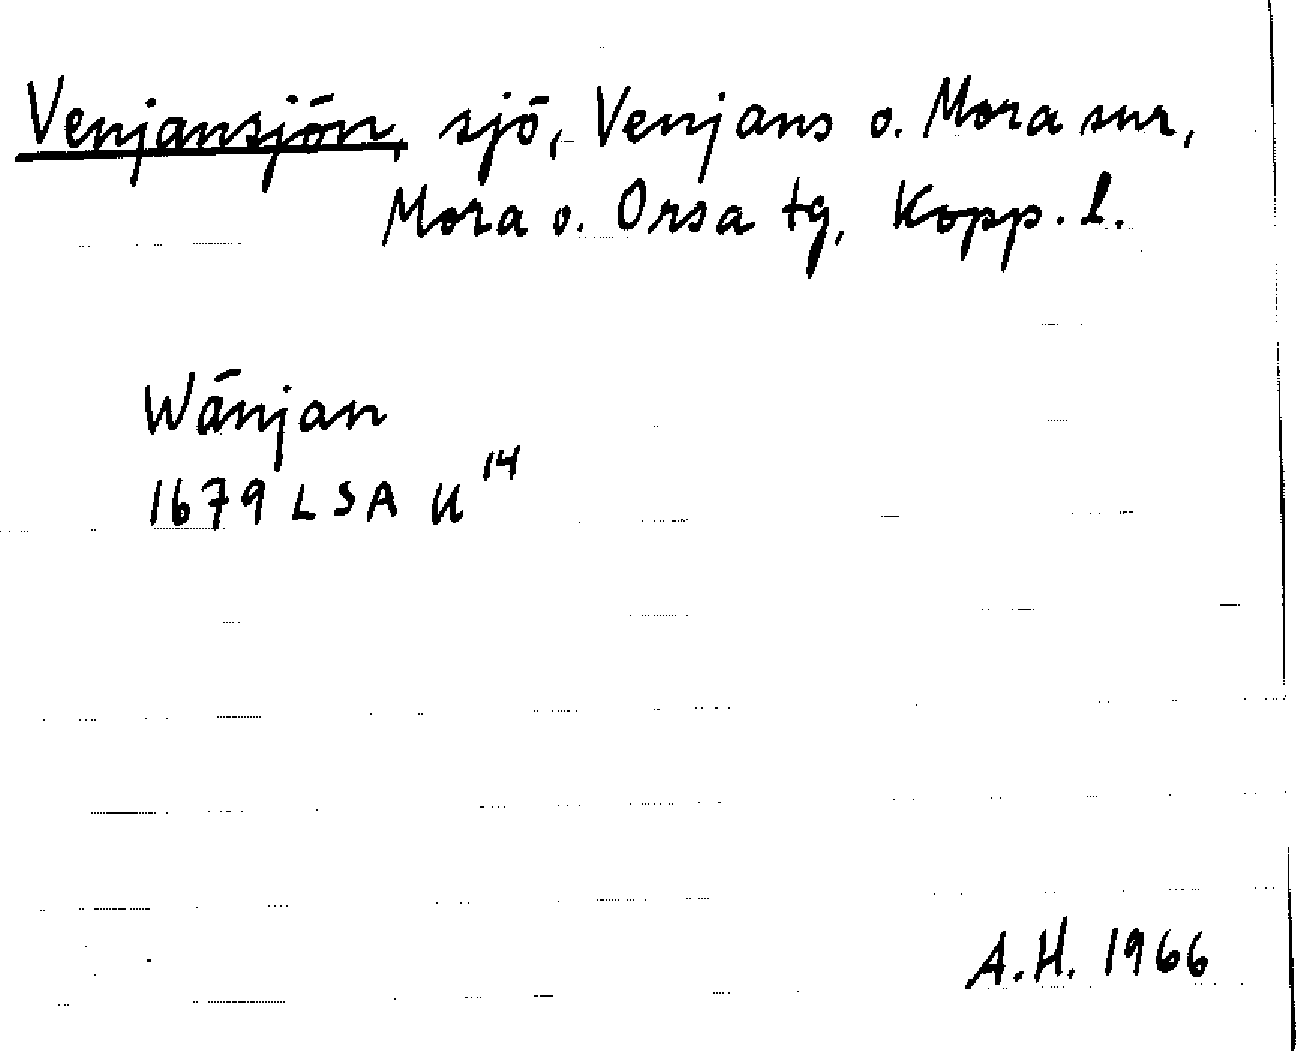 Venjansjön, sjö, Venjans o. Mora snr,
Mora o. Orsa tg, Kopp. l.
Wänjan
1679 LSA U 14
A.H. 1966